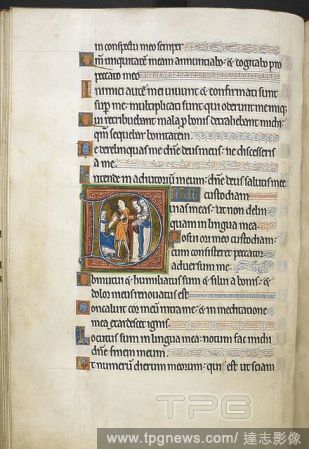 in conspectu meo semper
m iniquitatē meam annunciabo · & cogitabo pro
peccato meo
nimici autē mei uiuunt & confirmati sunt
sup me · multiplicati sunt · qui oderunt me iniq;
ui retribuebant mala p bonis detrahebant michi
qm̄ sequebar bonitatem
e derelinquas me dn̄e deus meus · ne discesseris
a me
ntende in adiutoriū meum · dn̄e deus salutis meę
custodiam
uias meas · ut non delin
quam in lingua mea
osui ori meo custodiam ·
cum consisteret peccator
aduersum me
bmutui & humiliatus sum & silui a bonis · &
dolor meus renouatus est
oncaluit cor meū intra me · & in meditatione
mea exardescet ignis
ocutus sum in lingua mea · notum fac michi
dn̄e finem meum
t numerū dierum meorum · qui est ut sciam
TPG
www.tpgnews.com/ 達志影像